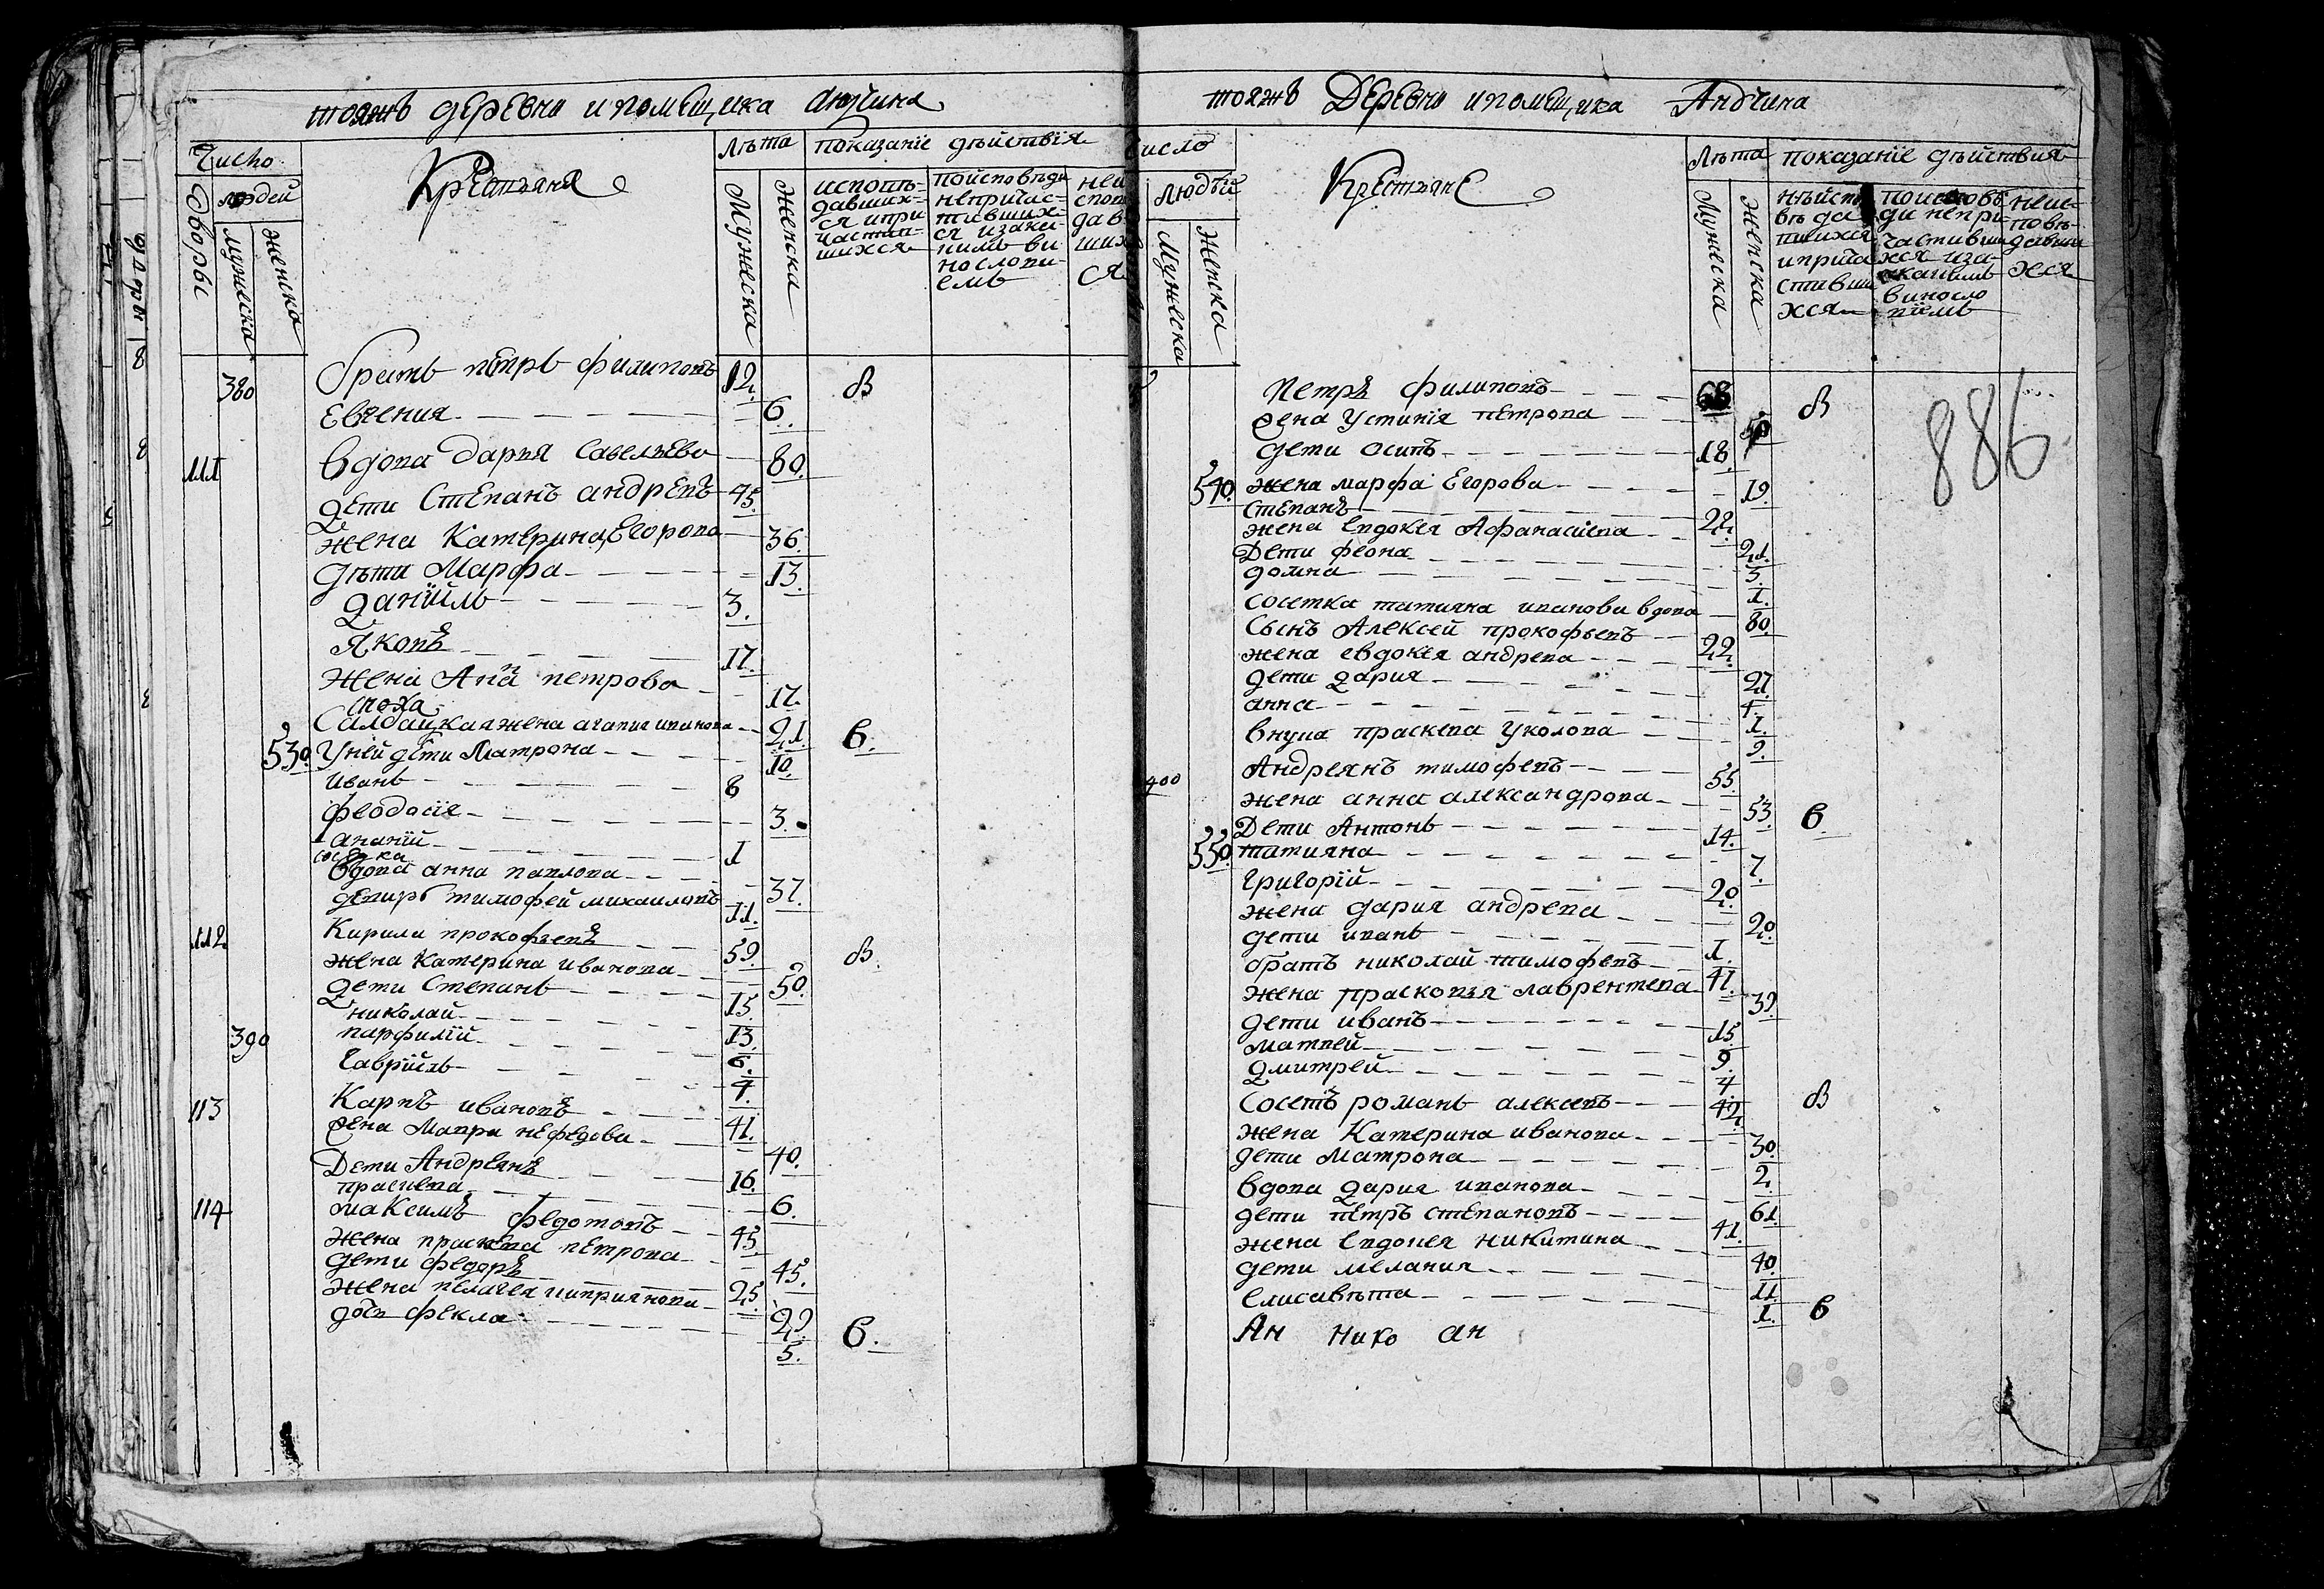 тояжъ деревни и помещика
Число
Дворы
людей
мужеска
женска
Крестьяня
Лѣта
Мужеска
женска
показанїе дѣиствїя
исповѣ-
давших-
ся и при
частив-
шихся
по исповѣди
непричас-
тивших-
ся и заки-
нимъ ви
нослови-
емъ
неи
спов
дав
ших
ся
380 братъ петръ филиповъ 12. В
Евгения 6.
111 вдова Дарья Савельева 80.
дети Степанъ андреевъ 45.
жена Катерина Егорова 36.
дѣти Марфа 13.
Данїилъ 3.
Яковъ 17.
Жена Анна петрова 17.
сноха
Салдацкая жена агапия иванова 21. в.
530 У ней дети Матрона 10.
иванъ 8
феодосїя 3.
ананїй 1
соседка
вдова анна павлова 37.
деверь тимофей михаиловъ 11.
112 Кирила прокофьевъ 59. В.
жена Катерина иванова 50.
дети Степанъ 15.
николай 13.
390 парфилїй 6.
Гаврїилъ 4.
113 Карпъ ивановъ 41.
жена Мавра нефедова 40.
Дети Андреянъ 16.
прасковѣа 6.
114 Максимъ федотовъ 45.
жена праскева петрова 45.
дети федоръ 25.
жена пелагея киприянова 29.
дочь фекла 5. в.
тояжъ Деревни и помещика Андчина
исло
людъи
Мужеска
женска
Крестьяне
Лѣта
Мужеска
женска
показанїе дѣиствия
хся
по исповѣ
ди непри
частивши
хся иза
виносло
неис-
повѣ-
давши
хся
886
Петръ филиповъ 68 В
жена Устинїя петрова 50
дети осипъ 18.
540. жена марфа Егорова 19.
Степанъ 22.
жена Евдокея Афанасиева 21.
Дети феона 5.
домна 1.
соседка татияна иванова вдова 80.
Сынъ Алексей прокофьевъ 22.
жена евдокея андрева 21.
дети Дария 4.
анна 1.
внука праскева Уколова 9.
400 Андреянъ тимофевъ 55.
жена анна александрова 53. в
Дети Антонъ 14.
550. татияна 7.
Григорїй 20.
жена дария андрева 20.
дети иванъ 1.
братъ николай тимофевъ 41.
жена прасковья лаврентева 39.
дети иванъ 15.
матвей 9.
Дмитрей 4
соседъ романъ алексевъ 42. В
жена Катерина иванова 30.
дети Матрона 2.
вдова Дария иванова 61.
дети петръ степановъ 41.
жена Евдокея никитина 40.
дети мелания 11.
Елисавѣта 1. в
Ан нико ан